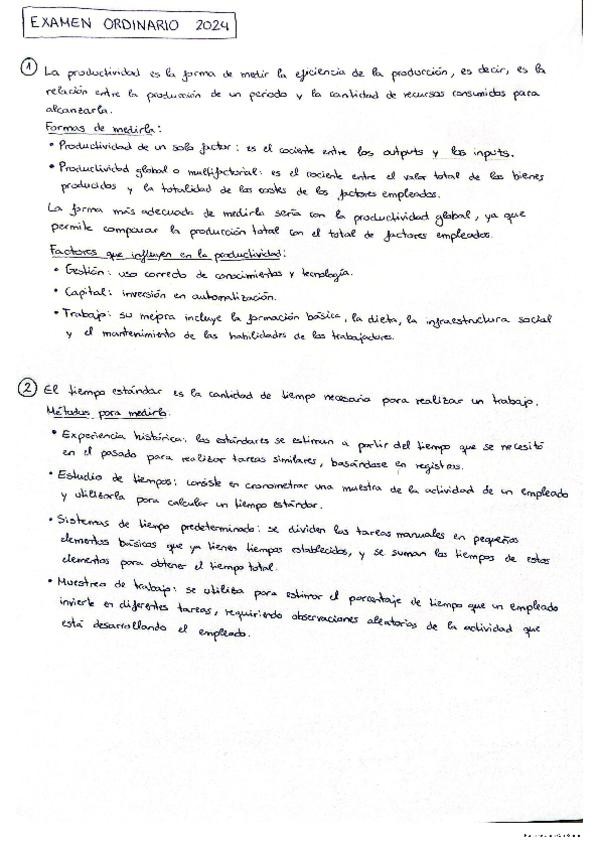 EXAMEN ORDINARIO 2024
1 La productividad es la forma de medir la eficiencia de la producción, es decir, es la
relación entre la producción de un periodo y la cantidad de recursos consumidos para
alcanzarla.
Formas de medirla:
• Productividad de un solo factor: es el cociente entre los outputs y los inputs.
• Productividad global o multifactorial: es el cociente entre el valor total de los bienes
producidos y la totalidad de los costes de los factores empleados.
La forma más adecuada de medirla sería con la productividad global, ya que
permite comparar la producción total con el total de factores empleados.
Factores que influyen en la productividad:
• Gestión: uso correcto de conocimientos y tecnología.
• Capital: inversión en automatización.
• Trabajo: su mejora incluye la formación básica, la dieta, la infraestructura social
y el mantenimiento de las habilidades de los trabajadores.
2 El tiempo estándar es la cantidad de tiempo necesaria para realizar un trabajo.
Métodos para medirlo:
• Experiencia histórica: los estándares se estiman a partir del tiempo que se necesitó
en el pasado para realizar tareas similares, basándose en registros.
• Estudio de tiempos: consiste en cronometrar una muestra de la actividad de un empleado
y utilizarla para calcular un tiempo estándar.
• Sistemas de tiempo predeterminado: se dividen las tareas manuales en pequeños
elementos básicos que ya tienen tiempos establecidos, y se suman los tiempos de estos
elementos para obtener el tiempo total.
• Muestreo de trabajo: se utiliza para estimar el porcentaje de tiempo que un empleado
invierte en diferentes tareas, requiriendo observaciones aleatorias de la actividad que
está desarrollando el empleado.